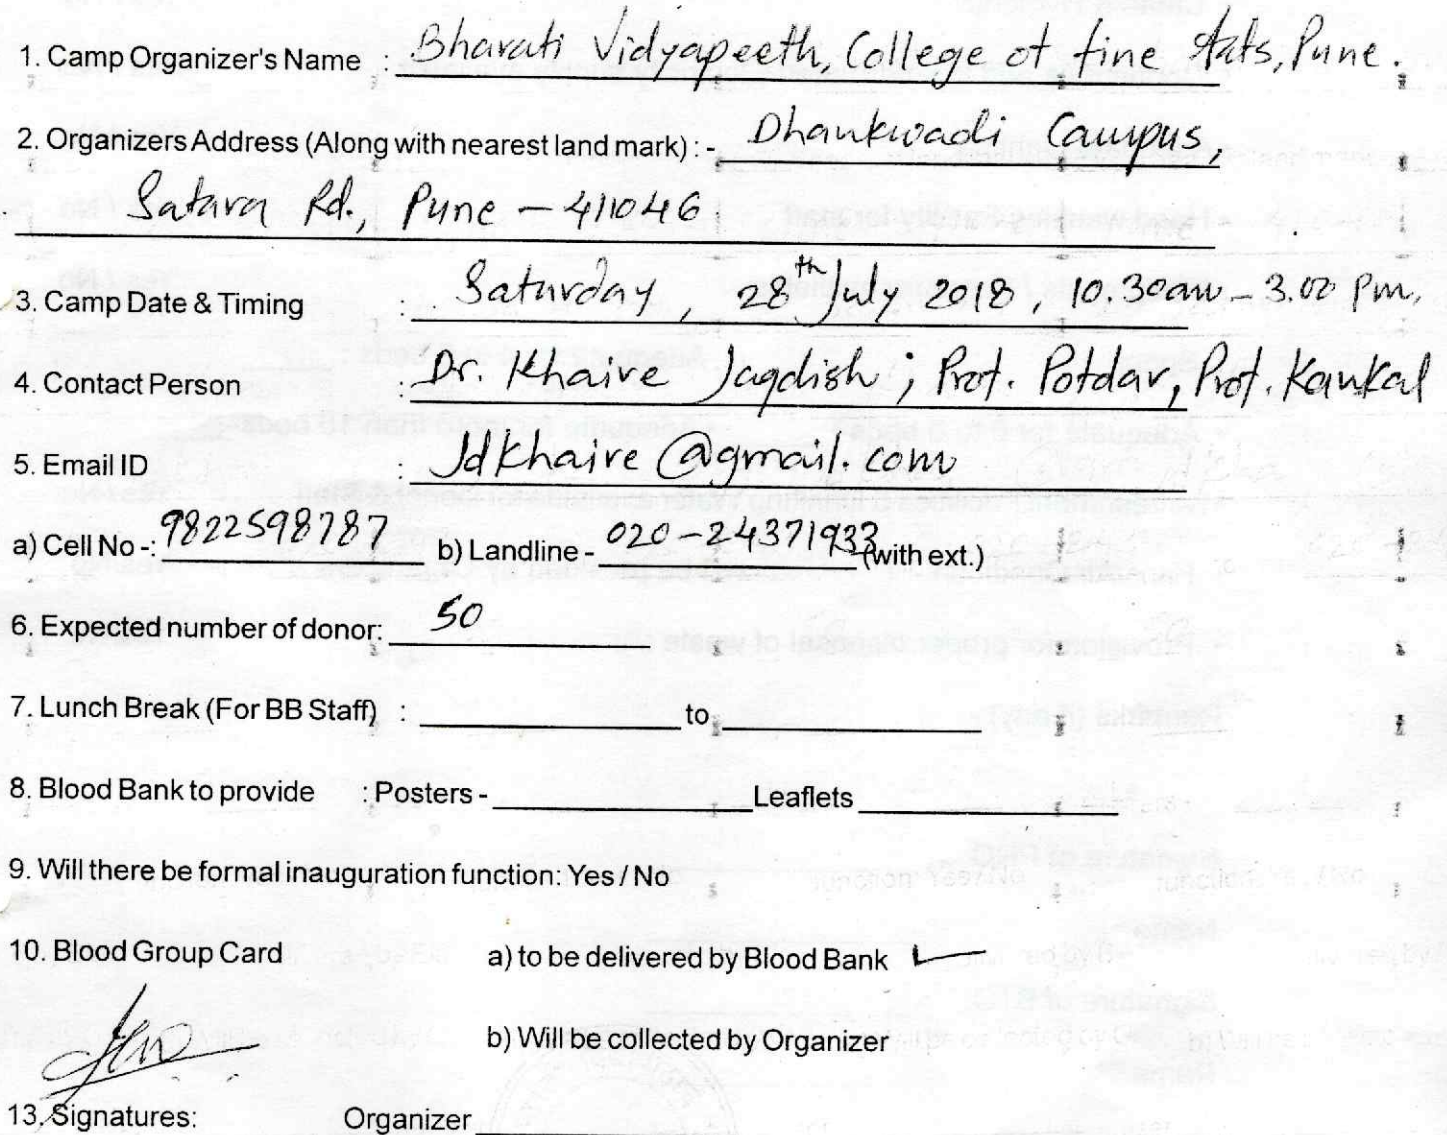 1. Camp Organizer's Name : Bharati Vidyapeeth, College of fine Arts, Pune.
2. Organizers Address (Along with nearest land mark) : - Dhankwadi Campus,
Satara Rd., Pune - 411046
3. Camp Date & Timing : Saturday, 28th July 2018, 10.30am - 3.00 pm,
4. Contact Person : Dr. Khaire Jagdish ; Prof. Potdar, Prof. Kankal
5. Email ID : Jdkhaire@gmail.com
a) Cell No -: 9822598787 b) Landline - 020-24371933 (with ext.)
6. Expected number of donor: 50
7. Lunch Break (For BB Staff) : to
8. Blood Bank to provide : Posters - Leaflets
9. Will there be formal inauguration function: Yes / No
10. Blood Group Card a) to be delivered by Blood Bank
b) Will be collected by Organizer
13. Signatures: Organizer